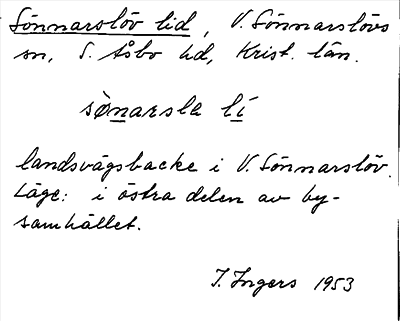 Sönnarslöv lid, V. Sönnarslövs
sn, S. Åsbo hd, Krist. län.
sønarsla lí
landsvägsbacke i V. Sönnarslöv.
Läge: i östra delen av by-
samhället.
I. Ingers 1953